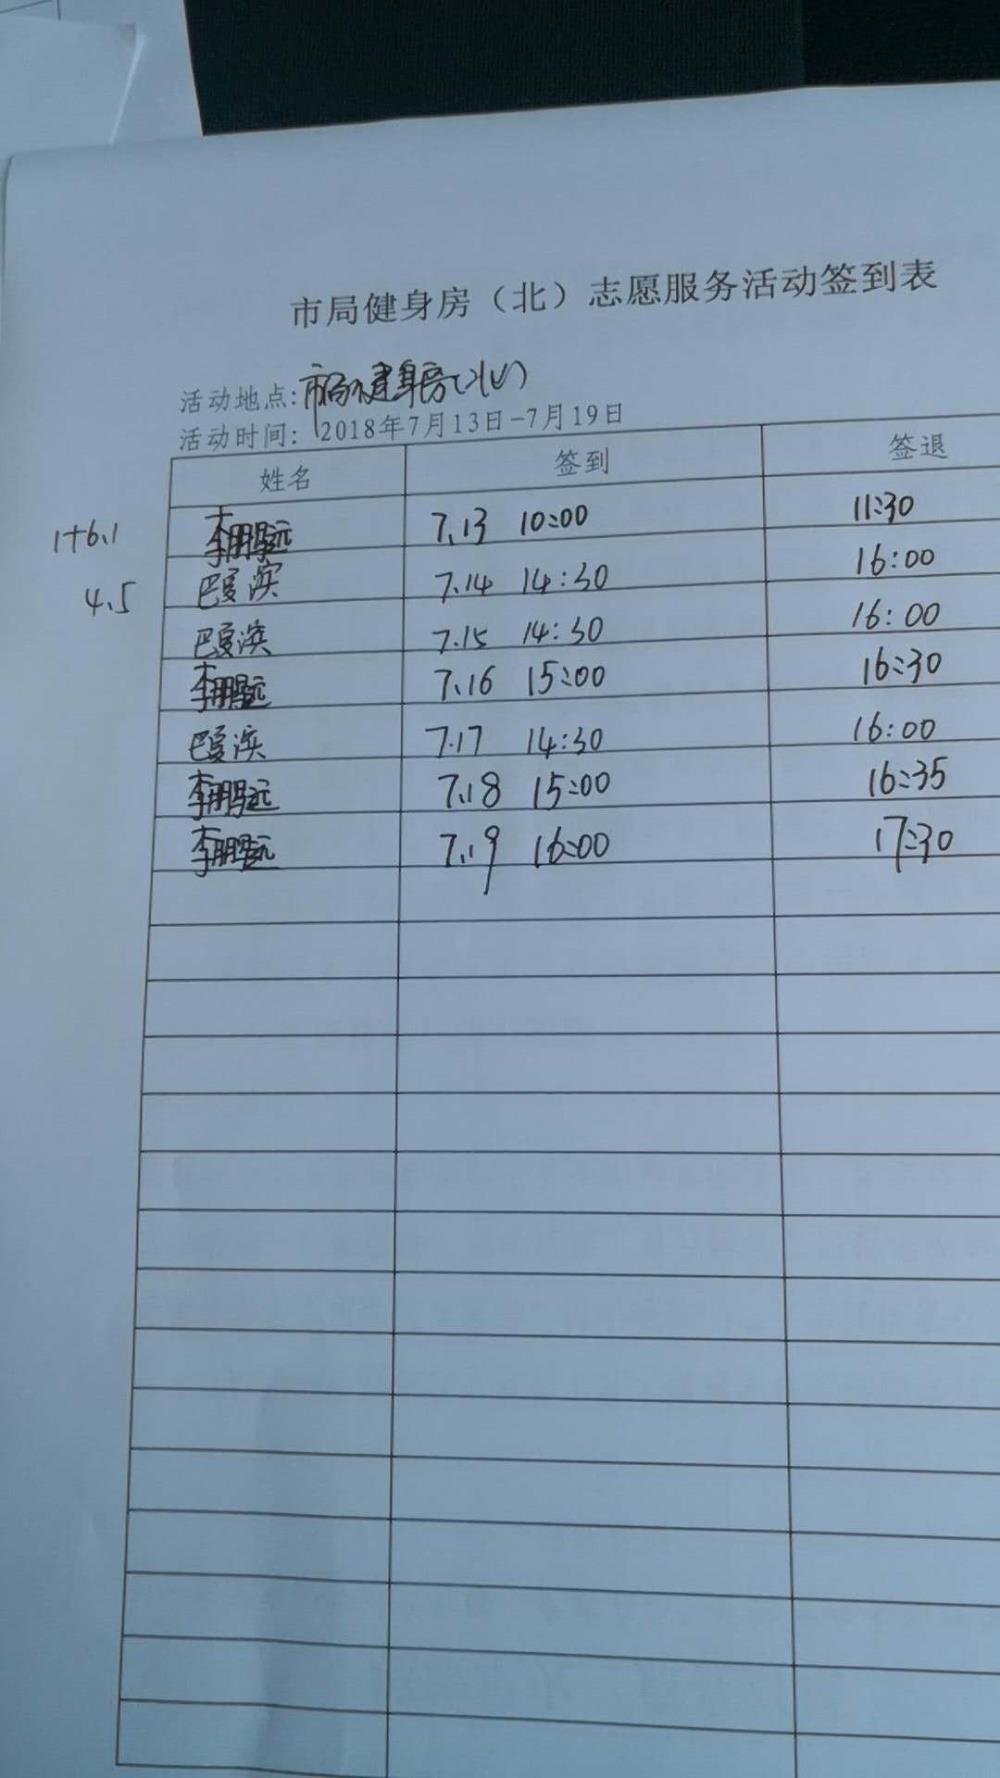 市局健身房（北）志愿服务活动签到表
活动地点：市局健身房(北)
活动时间：2018年7月13日-7月19日
姓名 签到 签退
1+6.1 李鹏远 7.13 10:00 11:30
4.5 巴夏滨 7.14 14:30 16:00
巴夏滨 7.15 14:30 16:00
李鹏远 7.16 15:00 16:30
巴夏滨 7.17 14:30 16:00
李鹏远 7.18 15:00 16:35
李鹏远 7.19 16:00 17:30